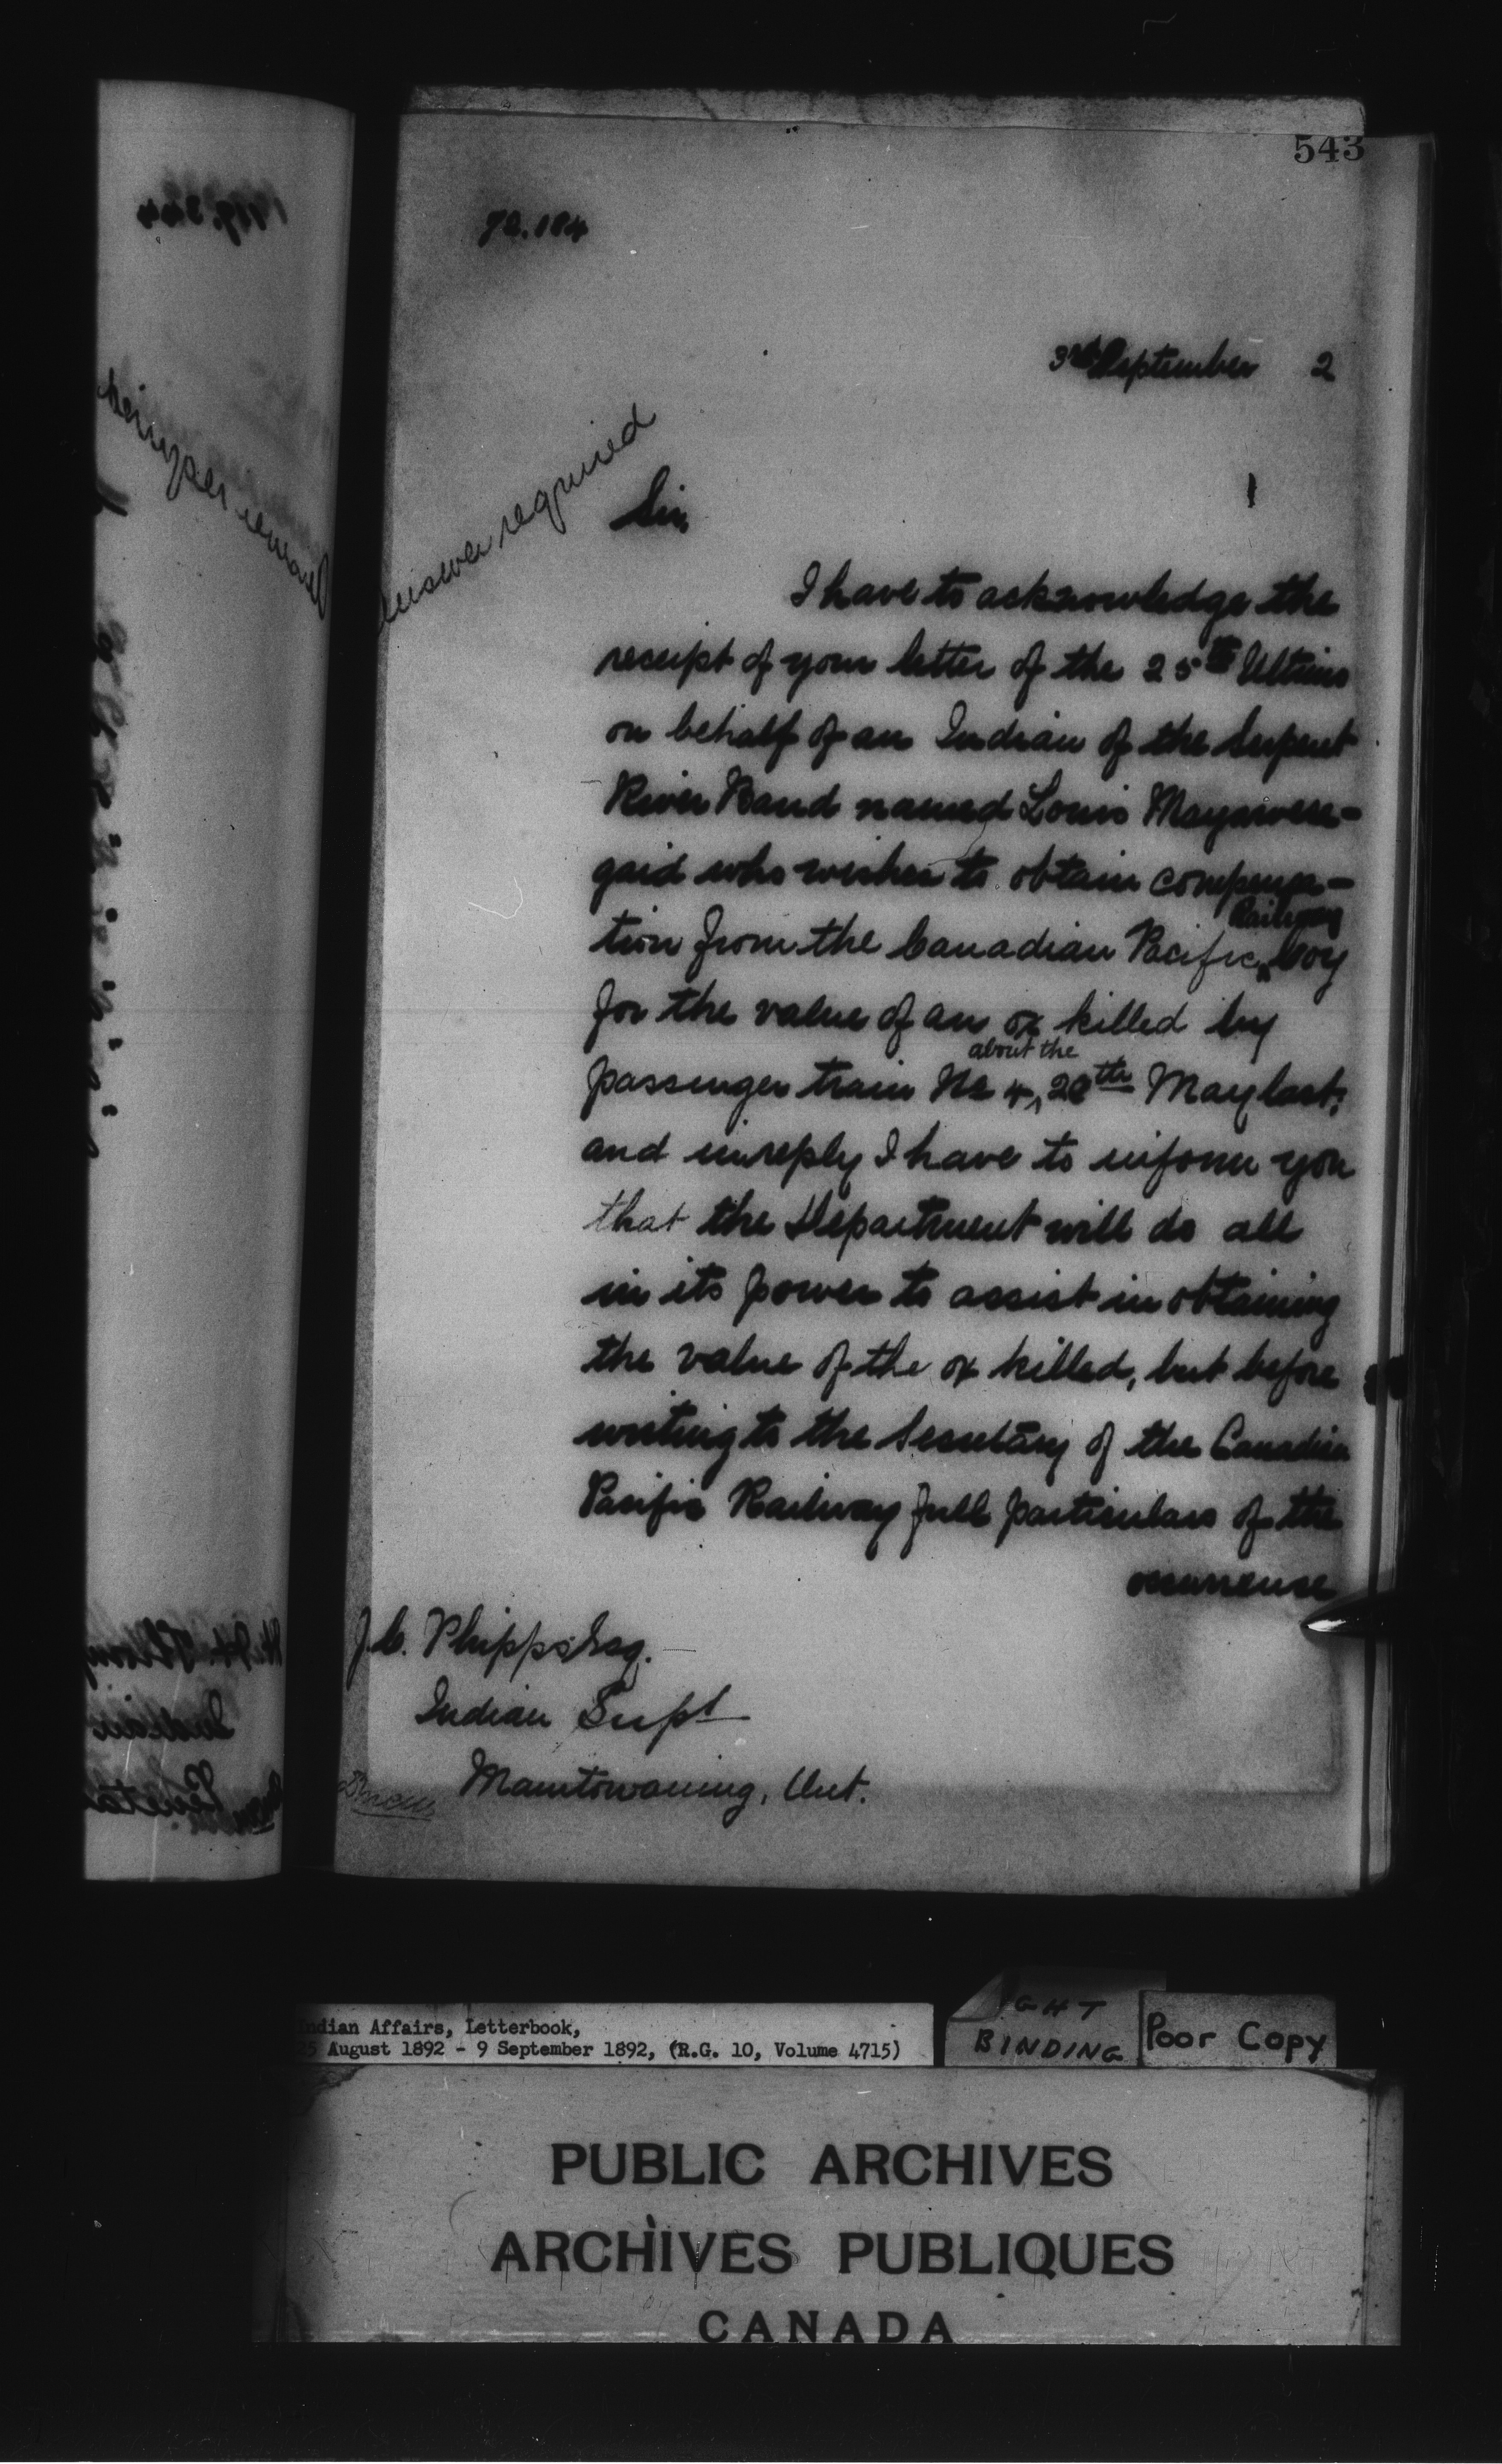 543
3rd September 2
Answer required
Sir,
I have to acknowledge the
receipt of your letter of the 25th Ultimo
on behalf of an Indian of the Serpent
River Band named Louis
who wishes to obtain compensa-
tion from the Canadian Pacific Railway Coy
for the value of an ox killed by
passenger train No 4, about the 28th May last;
and in reply I have to inform you
that the Department will do all
in its power to assist in obtaining
the value of the ox killed, but before
writing to the Secretary of the Canadian
Pacific Railway full particulars of the
occurrence
J.C. Phipps Esq.
Indian Supt
Manitowaning, Ont.
Indian Affairs, Letterbook,
25 August 1892 - 9 September 1892, (R.G. 10, Volume 4715)
BINDING
Poor Copy
PUBLIC ARCHIVES
ARCHIVES PUBLIQUES
CANADA